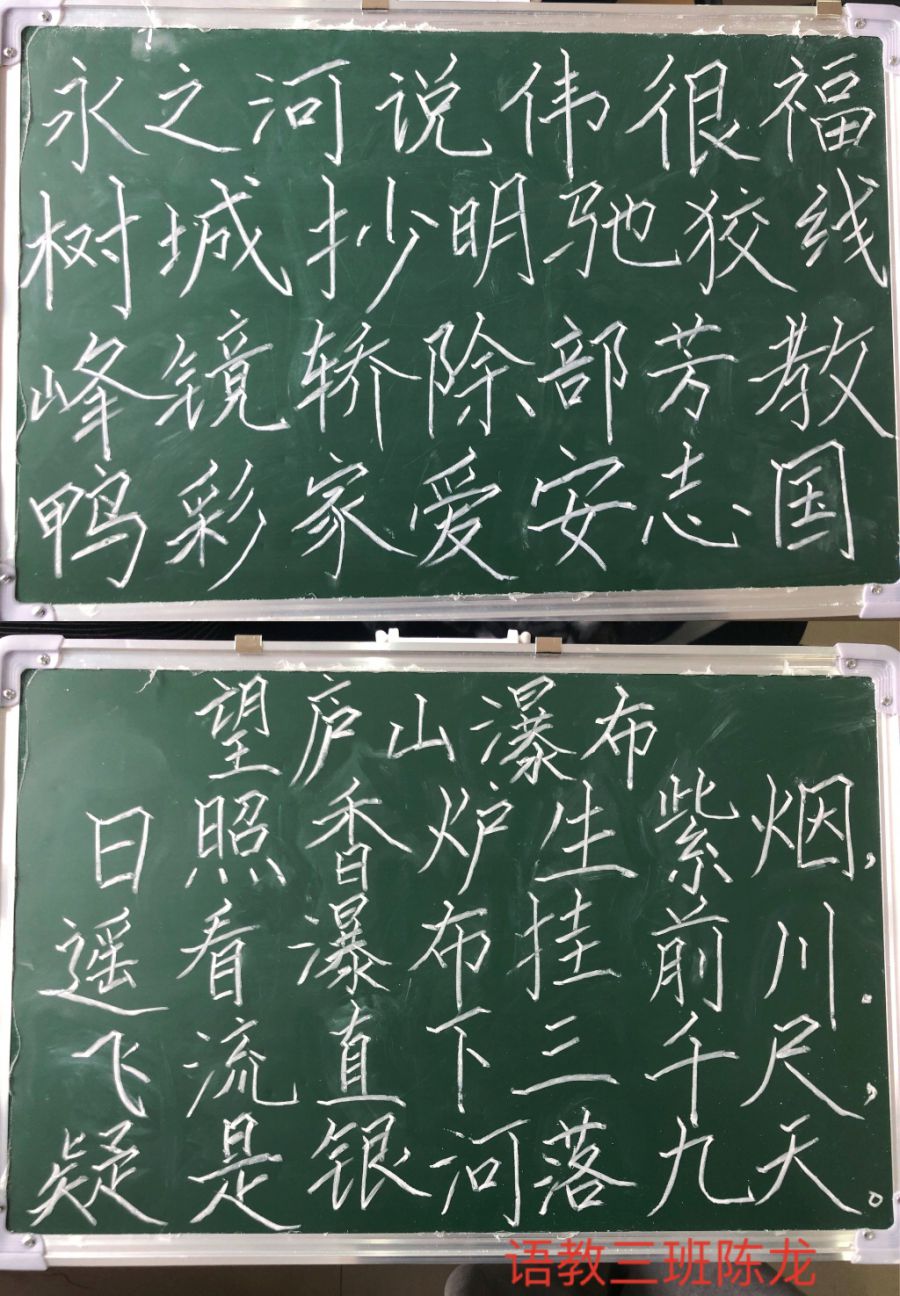 永之河说伟很福
树城抄明驰狡线
峰镜轿除部芳教
鸭彩家爱安志国
望庐山瀑布
日照香炉生紫烟,
遥看瀑布挂前川.
飞流直下三千尺,
疑是银河落九天。
语教三班陈龙